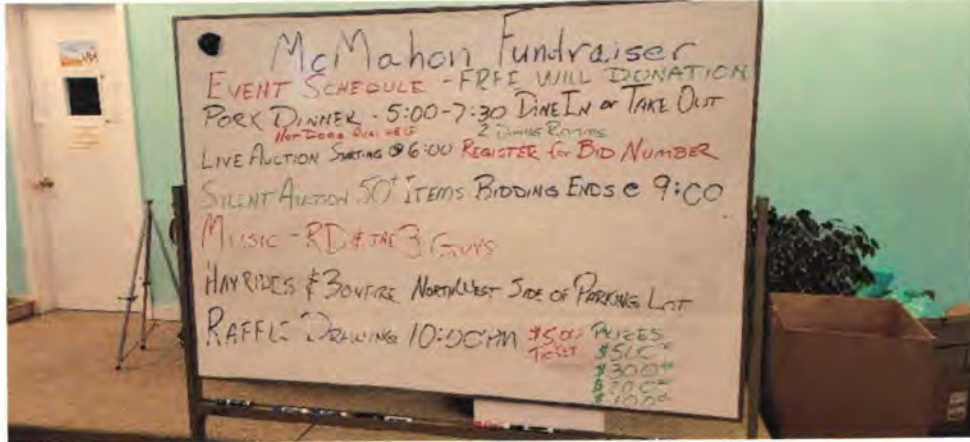 McMahon Fundraiser
EVENT SCHEDULE - FREE WILL DONATION
PORK DINNER - 5:00-7:30 DINE IN or TAKE OUT
HOT DOGS AVAILABLE 2 DINING ROOMS
LIVE AUCTION STARTING @ 6:00 REGISTER for BID NUMBER
SILENT AUCTION 50+ ITEMS BIDDING ENDS @ 9:00
MUSIC - RD & THE 3 GUYS
HAYRIDES & BONFIRE NORTHWEST SIDE OF PARKING LOT
RAFFLE DRAWING 10:00PM $5.00 PRIZES
TICKET $500
$300
$200
$100